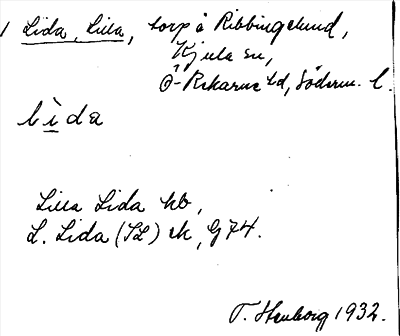 1 Lida, Lilla, torp å Ribbingelund,
Kjula sn,
Ö-Rekarne hd, Söderm. l.
lìda
Lilla Lida kb,
L. Lida (SL) ek, G 74.
T. Stenborg 1932.